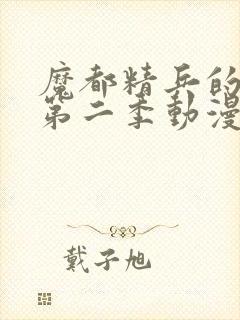 魔都精兵的
第二季動漫
戴子旭